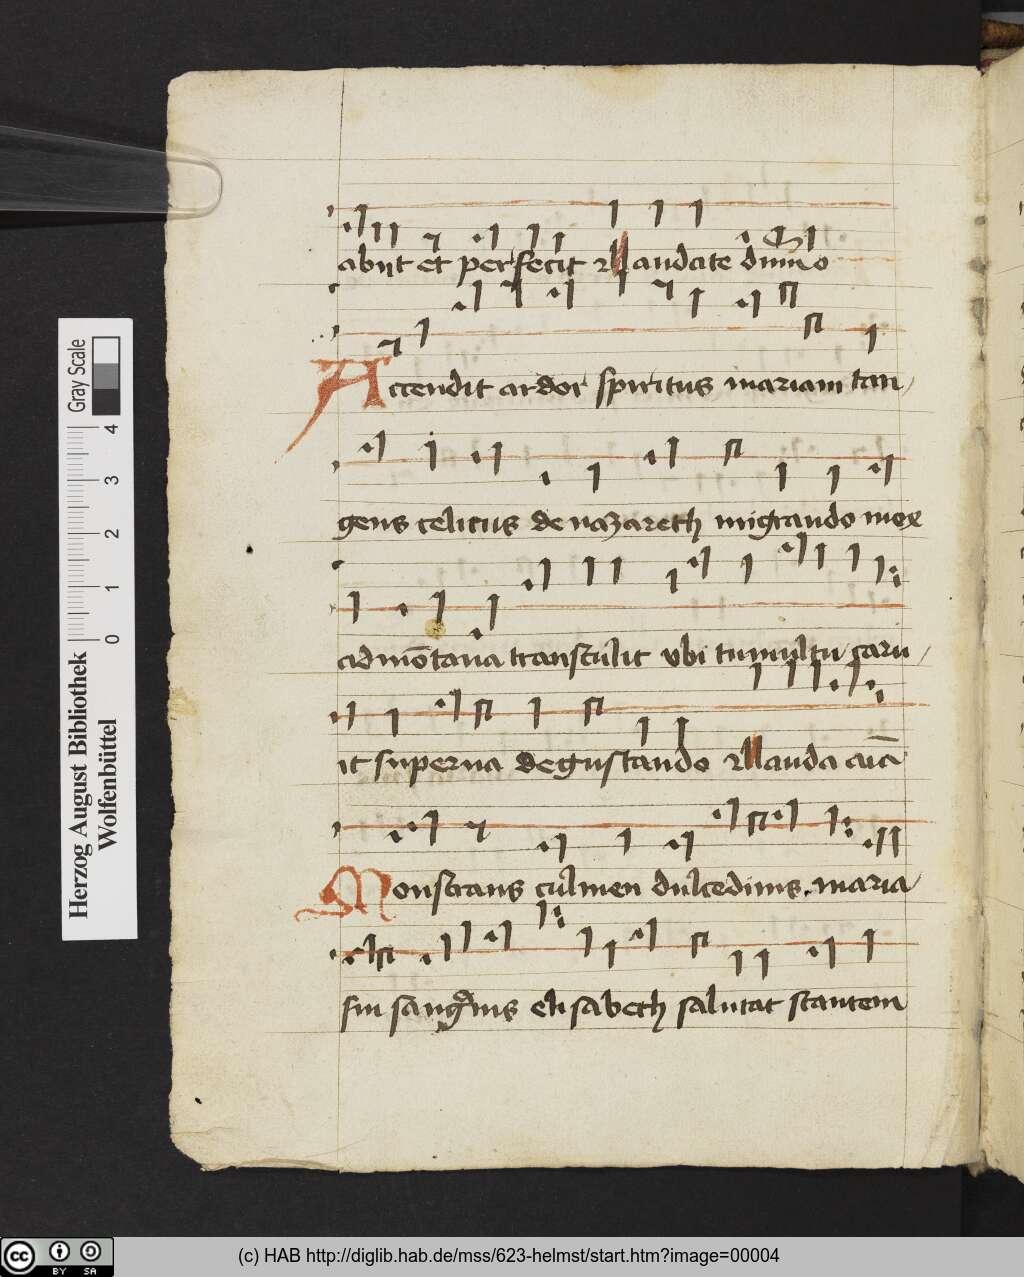 abijt et perfecit Ps Laudate dnm̄ o
Accendit ardor spiritus mariam tan/
gens celicus de nazareth migrando mox
ad mōtana transtulit vbi tumultu caru/
it superna degustando Ps Lauda aīā
Monstrans culmen dulcedinis. maria
sui sanguīs elisabeth salutat stantem
Herzog August Bibliothek
Wolfenbüttel
Gray Scale
0 1 2 3 4
cc BY SA
(c) HAB http://diglib.hab.de/mss/623-helmst/start.htm?image=00004